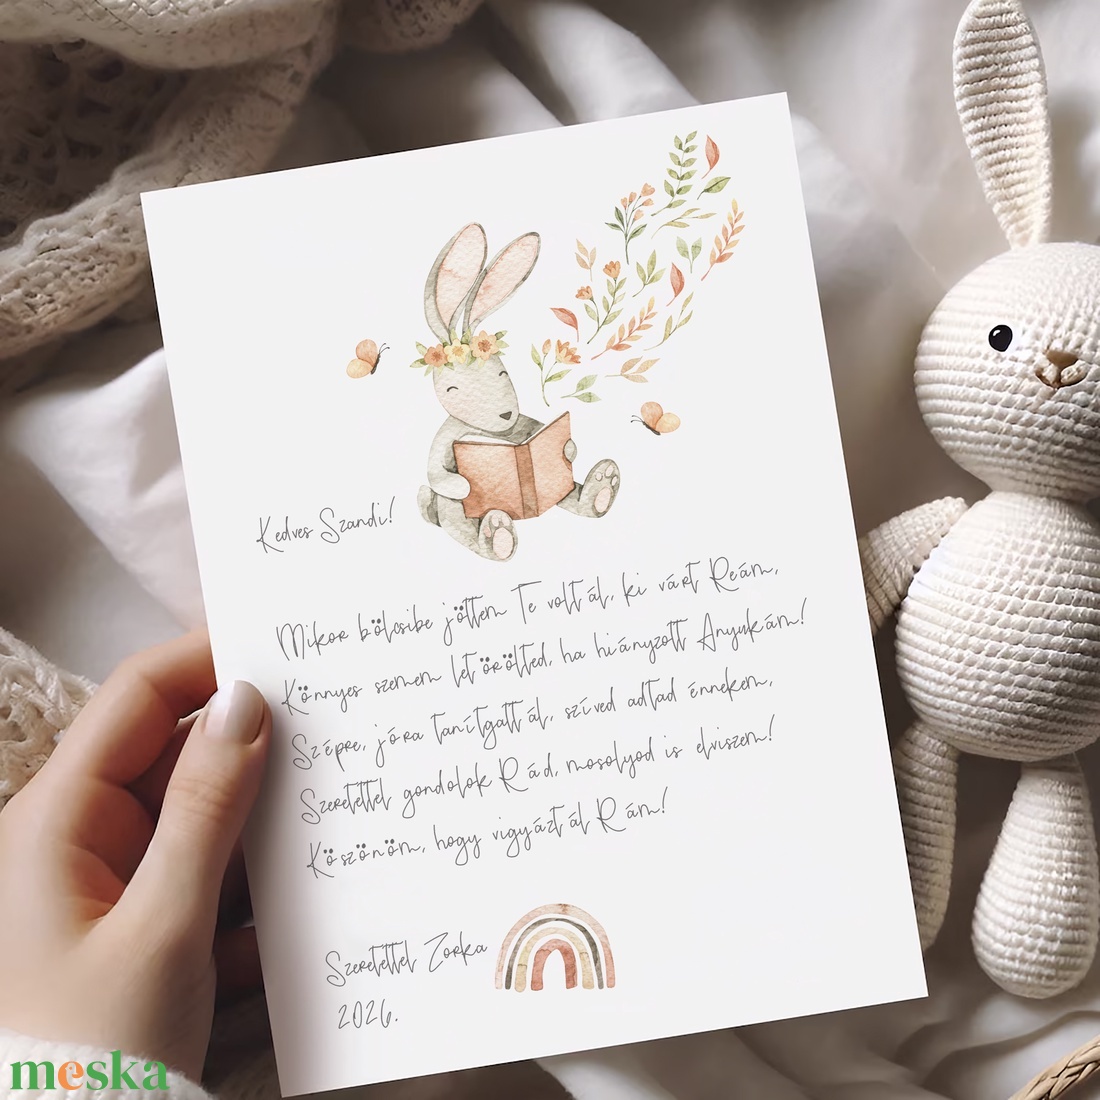 Kedves Szandi!
Mikor bölcsibe jöttem Te voltál, ki várt Reám,
Könnyes szemem letörölted, ha hiányzott Anyukám!
Szépre, jóra tanítgattál, szíved adtad énnekem,
Szeretettel gondolok Rád, mosolyod is elviszem!
Köszönöm, hogy vigyáztál Rám!
Szeretettel Zorka
2026.
meska